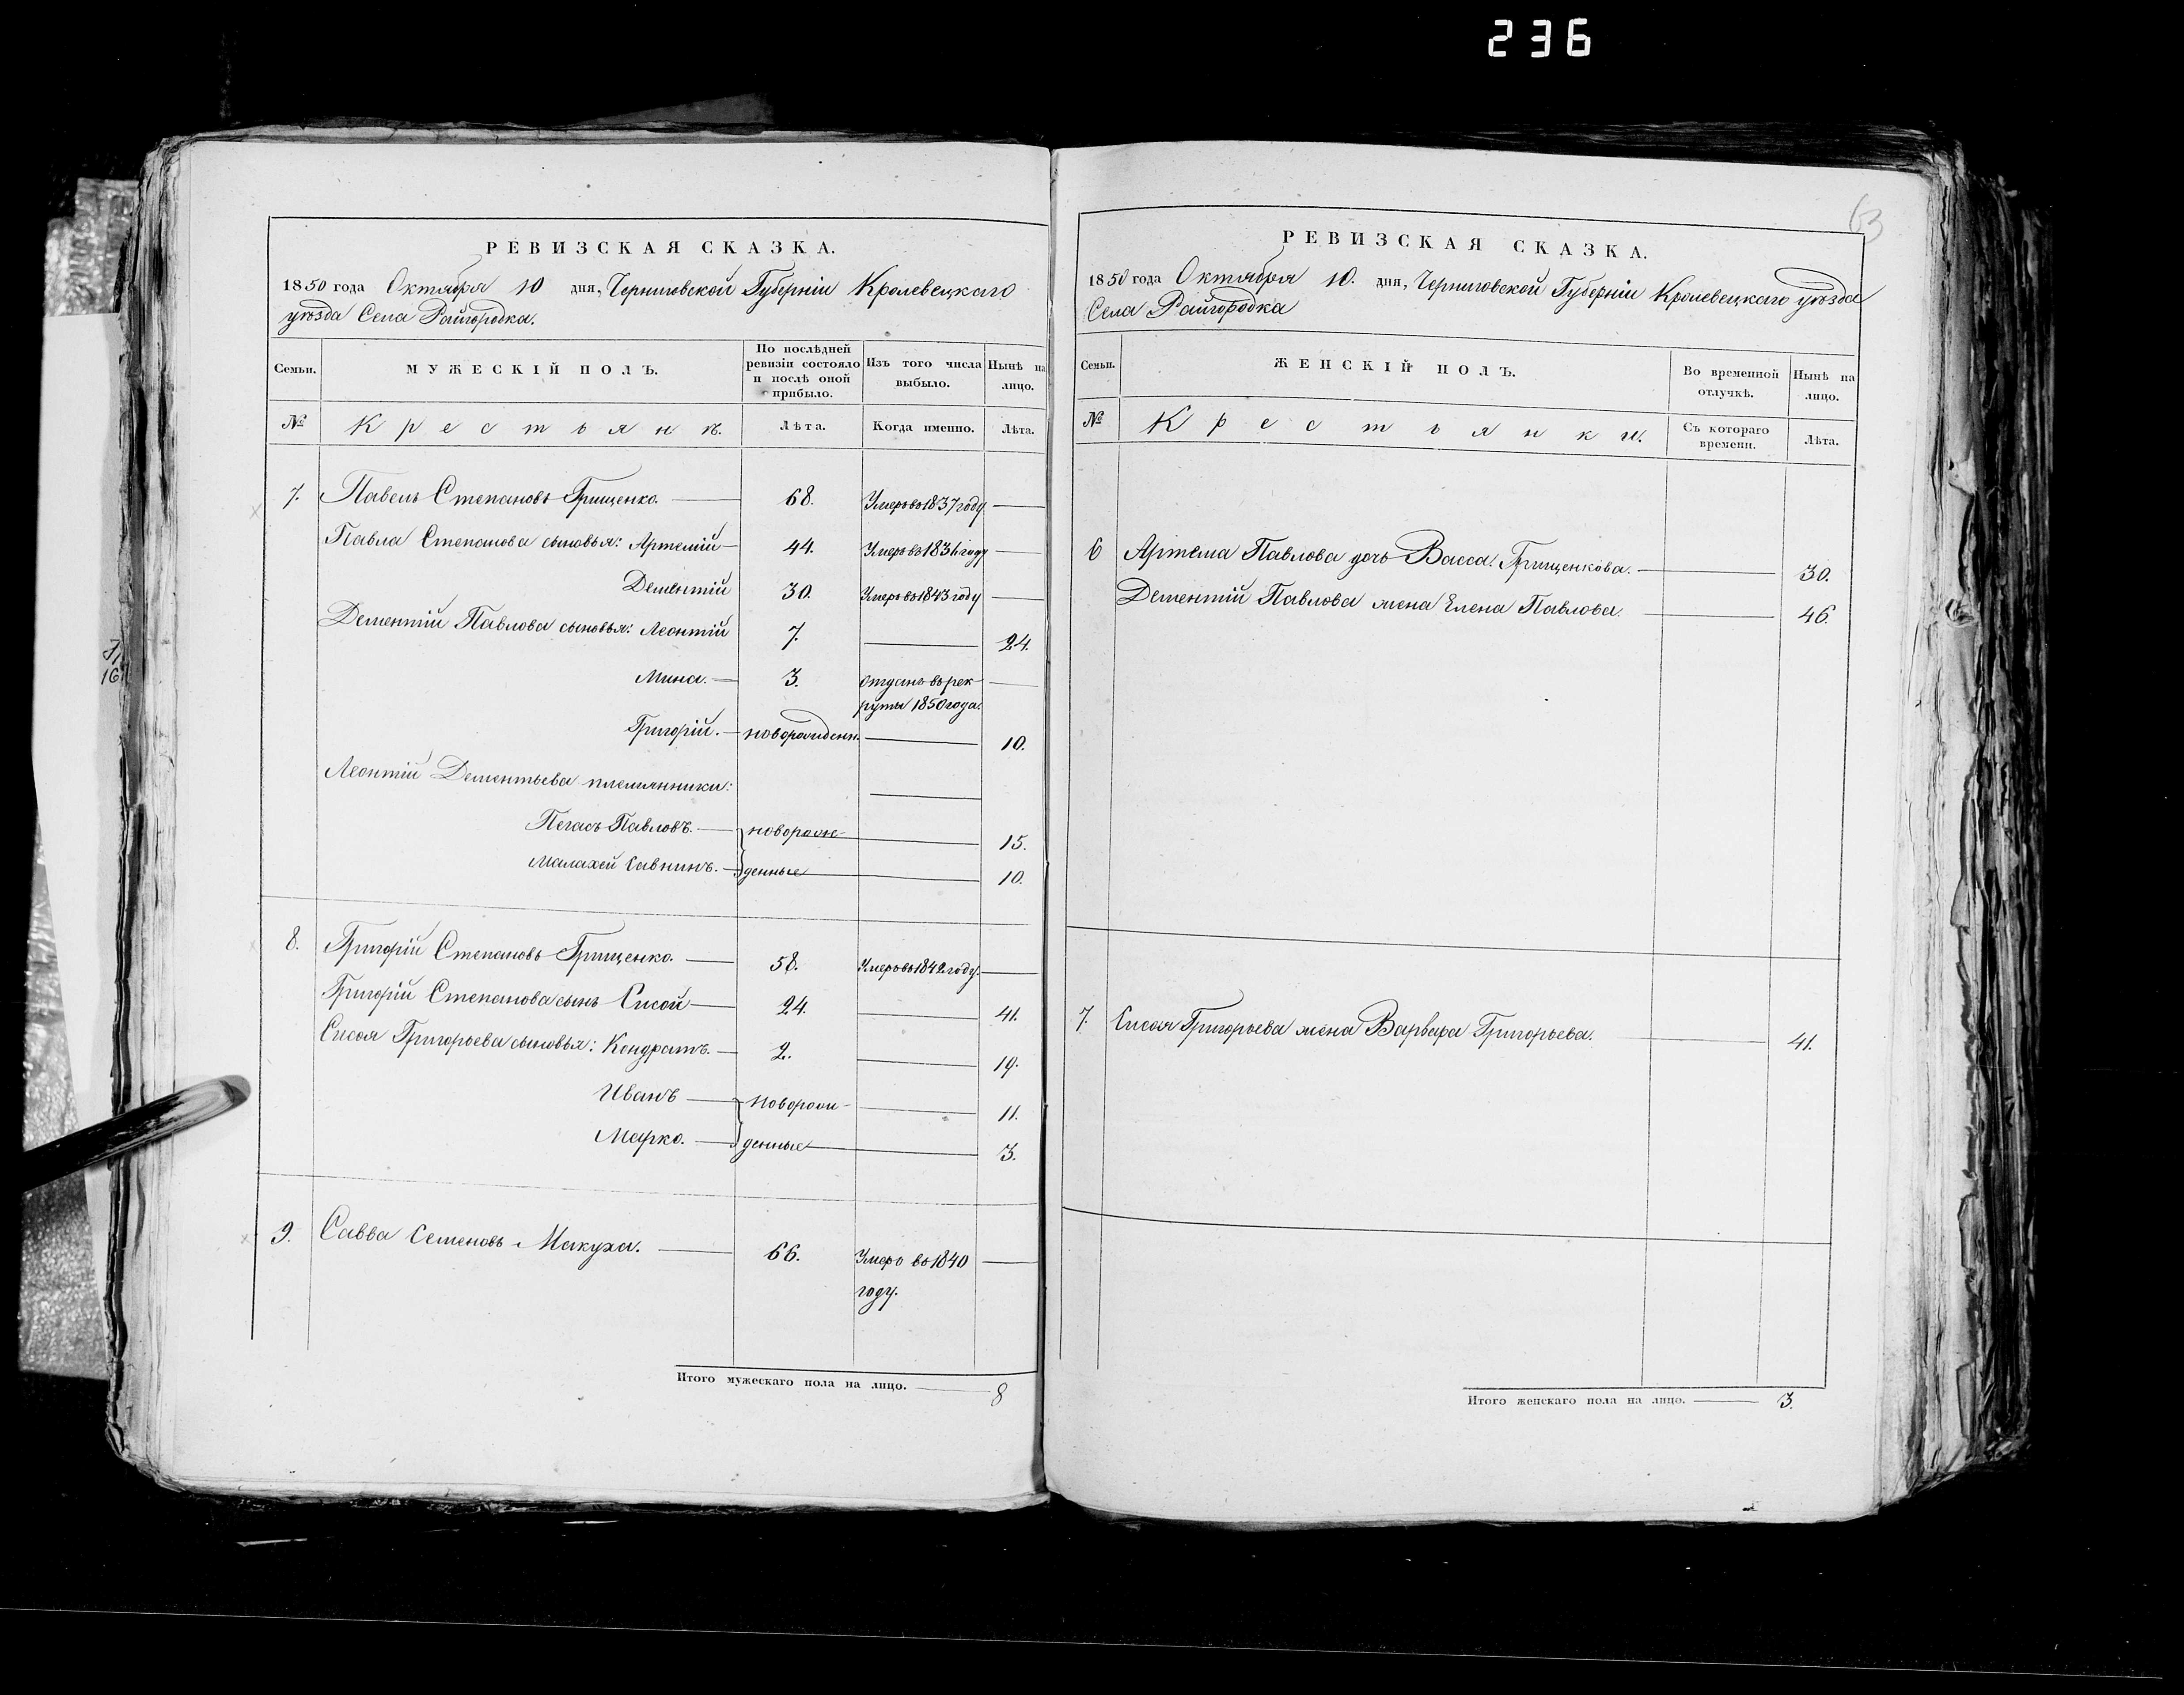 236
63
РЕВИЗСКАЯ СКАЗКА.
1850 года Октября 10 дня, Черниговской Губерніи Кролевецкаго
уѣзда Села Райгородка.
Семьи.
МУЖЕСКІЙ ПОЛЪ.
По послѣдней ревизіи состояло и послѣ оной прибыло.
Изъ того числа выбыло.
Нынѣ на лицо.
№
Крестьянъ.
Лѣта.
Когда именно.
Лѣта.
7. Павелъ Степановъ Грищенко. 68. Умеръ въ 1837 году
Павла Степанова сыновья: Артемій 44. Умеръ въ году
Дементій 30. Умеръ въ 1843 году
Дементій Павлова сыновья: Леонтій 7. 24.
Мина. 3. отданъ въ рек-
руты 1850 года.
Григорій. новорожденн. 10.
Леонтій Дементьева племянники:
Павловъ. новорож- 15.
Малахей Савнинъ. денные 10.
8. Григорій Степановъ Грищенко. 58. Умеръ въ 1842 году.
Григорій Степанова сынъ Сисой 24. 41.
Сисоя Григорьева сыновья: Кондратъ. 2. 19.
Иванъ новорож- 11.
Марко. денные 3.
9. Савва Семеновъ Макуха. 66. Умеръ въ 1840
году.
Итого мужескаго пола на лицо. 8
РЕВИЗСКАЯ СКАЗКА.
1850 года Октября 10. дня, Черниговской Губерніи Кролевецкаго уѣзда
Села Райгородка
Семьи.
ЖЕНСКІЙ ПОЛЪ.
Во временной отлучкѣ.
Нынѣ на лицо.
№
Крестьянки.
Съ котораго времени.
Лѣта.
6 Артема Павлова дочь Васса Грищенкова. 30.
Дементій Павлова жена Елена Павлова. 46.
7. Сисоя Григорьева жена Варвара Григорьева. 41.
Итого женскаго пола на лицо. 3.